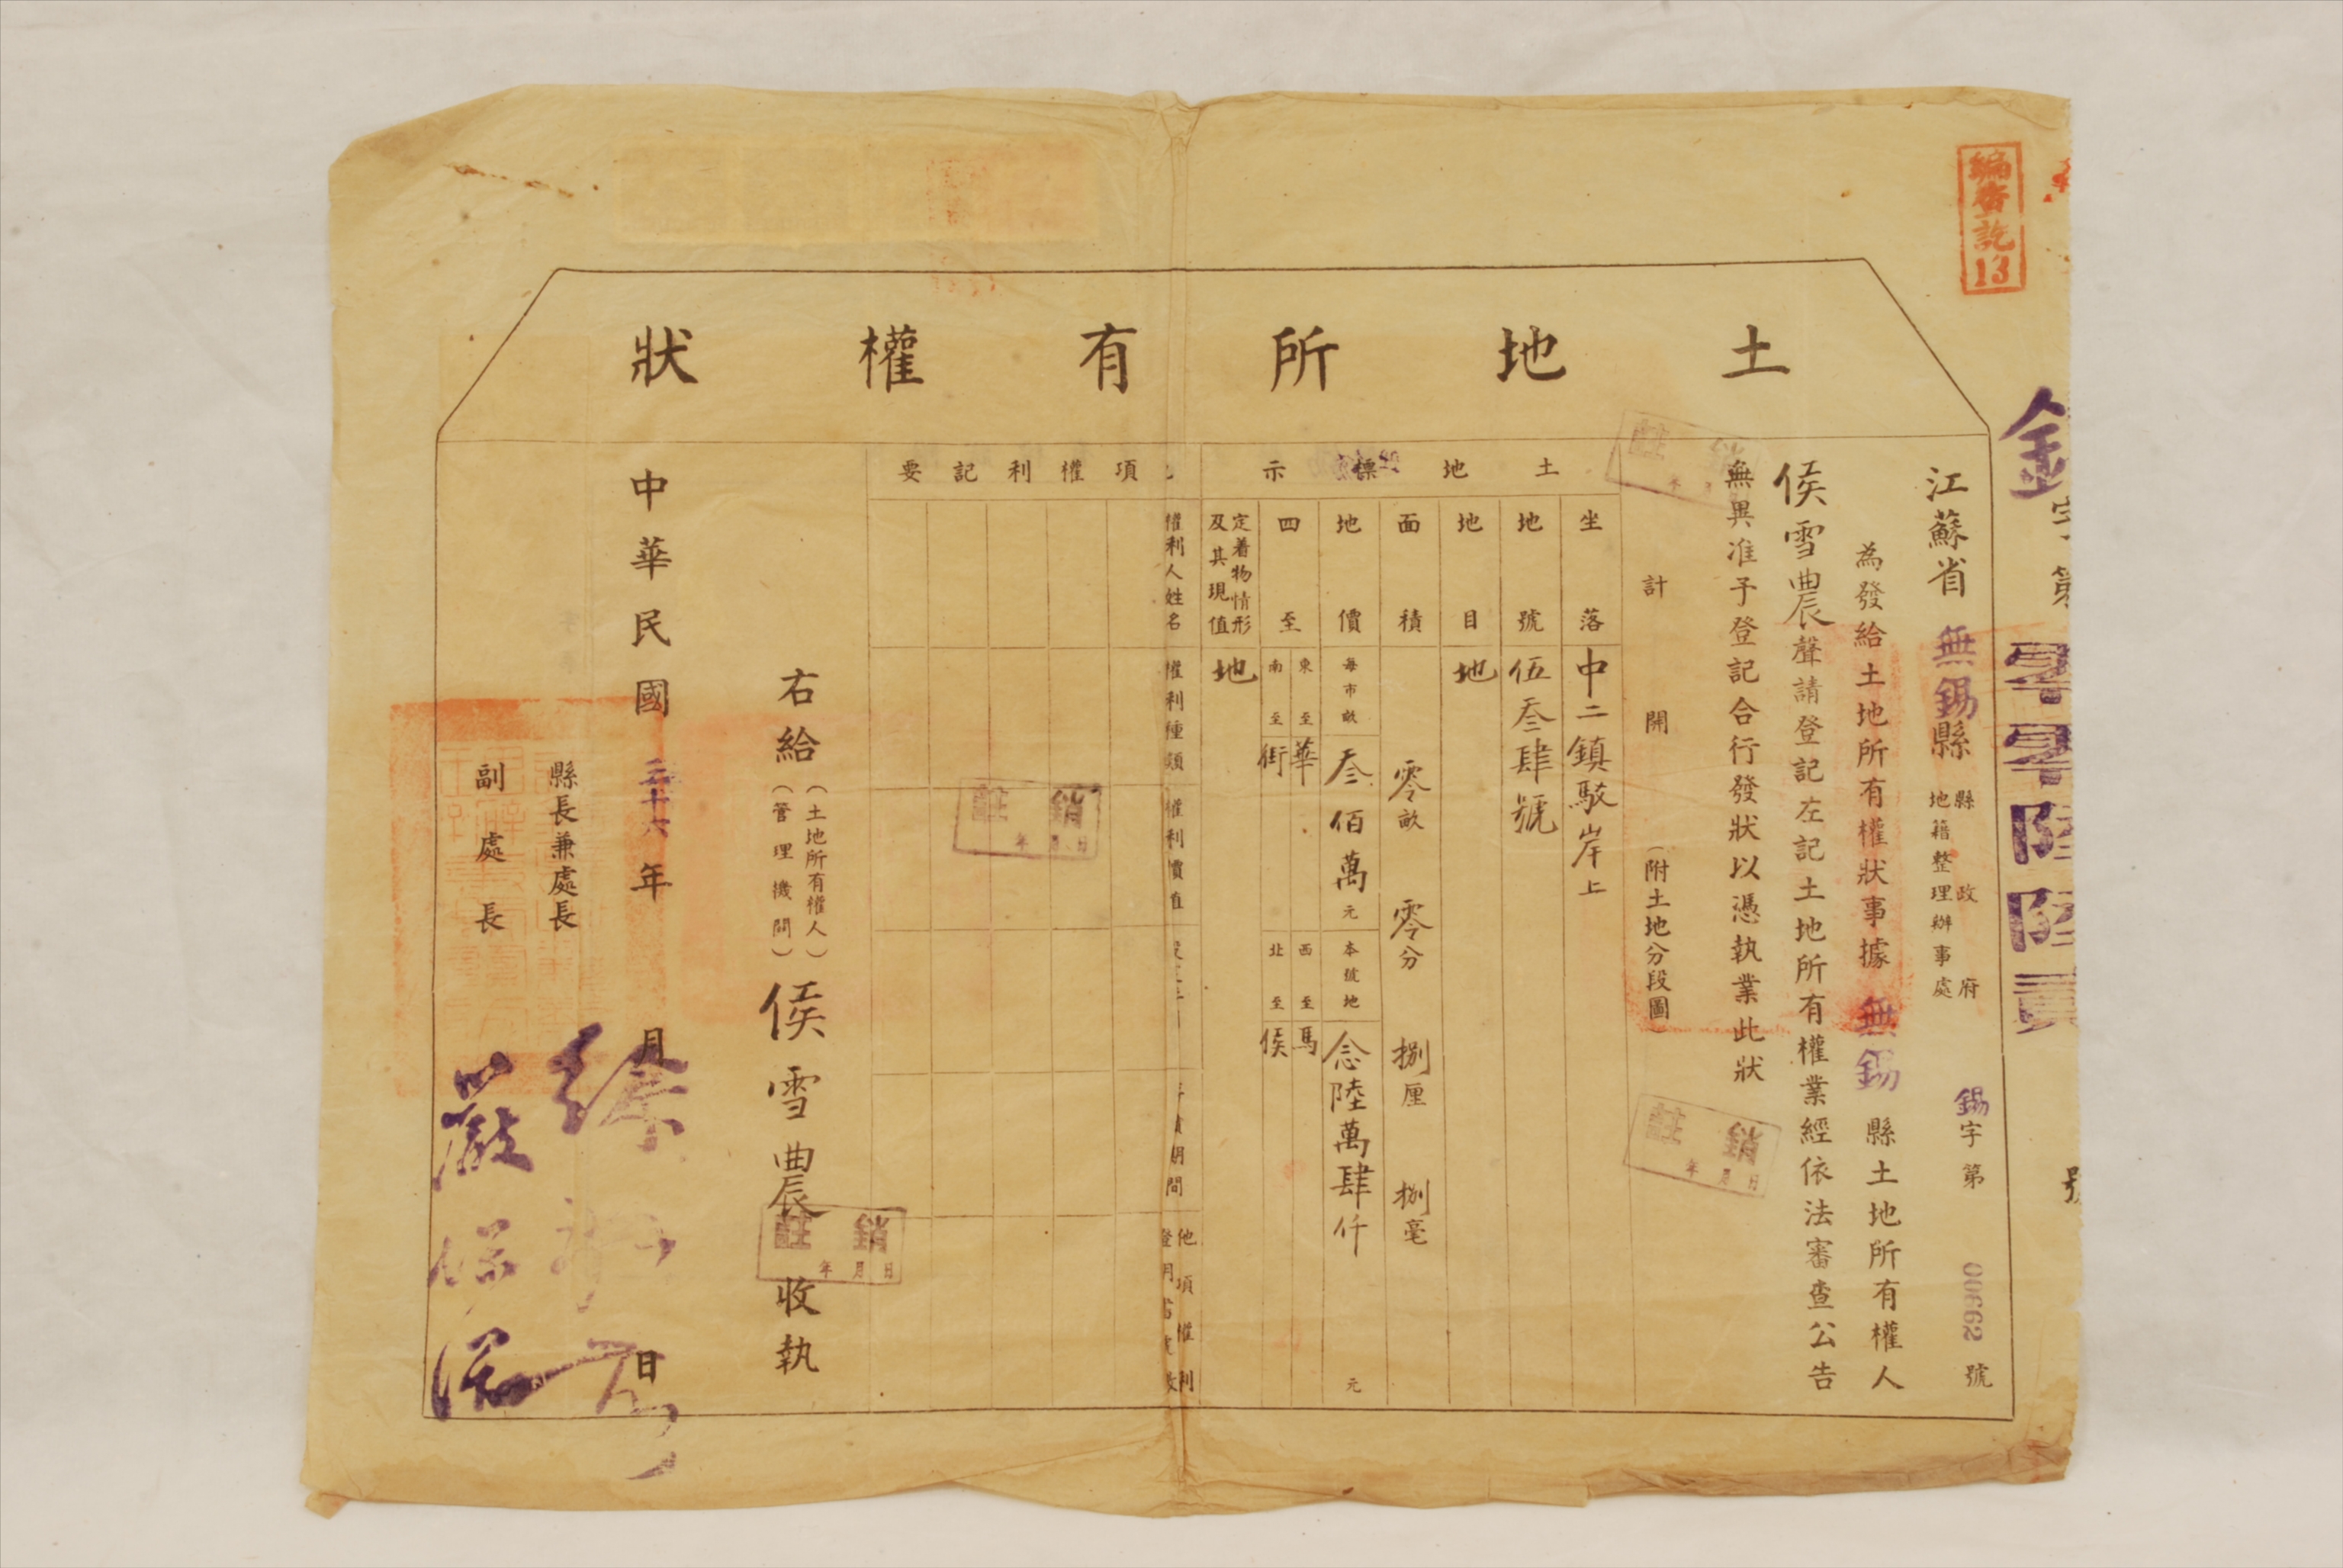 土地所有權狀
編查訖
13
零零陸陸貳
江蘇省無錫縣
縣政府
地籍整理辦事處
錫字第00662號
為發給土地所有權狀事據無錫縣土地所有權人
侯雪農聲請登記左記土地所有權業經依法審查公告
無異准予登記合行發狀以憑執業此狀
計開(附土地分段圖)
土地標示
坐落 中二鎮駁岸上
地號 伍叁肆號
地目 地
面積 零畝零分捌厘捌毫
地價 每市畝叁佰萬元 本號地念陸萬肆仟元
四至 東至華 西至馬
南至街 北至侯
定着物情形及其現值 地
項權利記要
權利人姓名
權利種類
權利價值
期間
他項權利
右給(土地所有權人)
(管理機關)
侯雪農收執
中華民國三十六年月日
縣長兼處長
副處長
嚴保滋
註銷
年月日
註銷
年月日
註銷
年月日
註銷